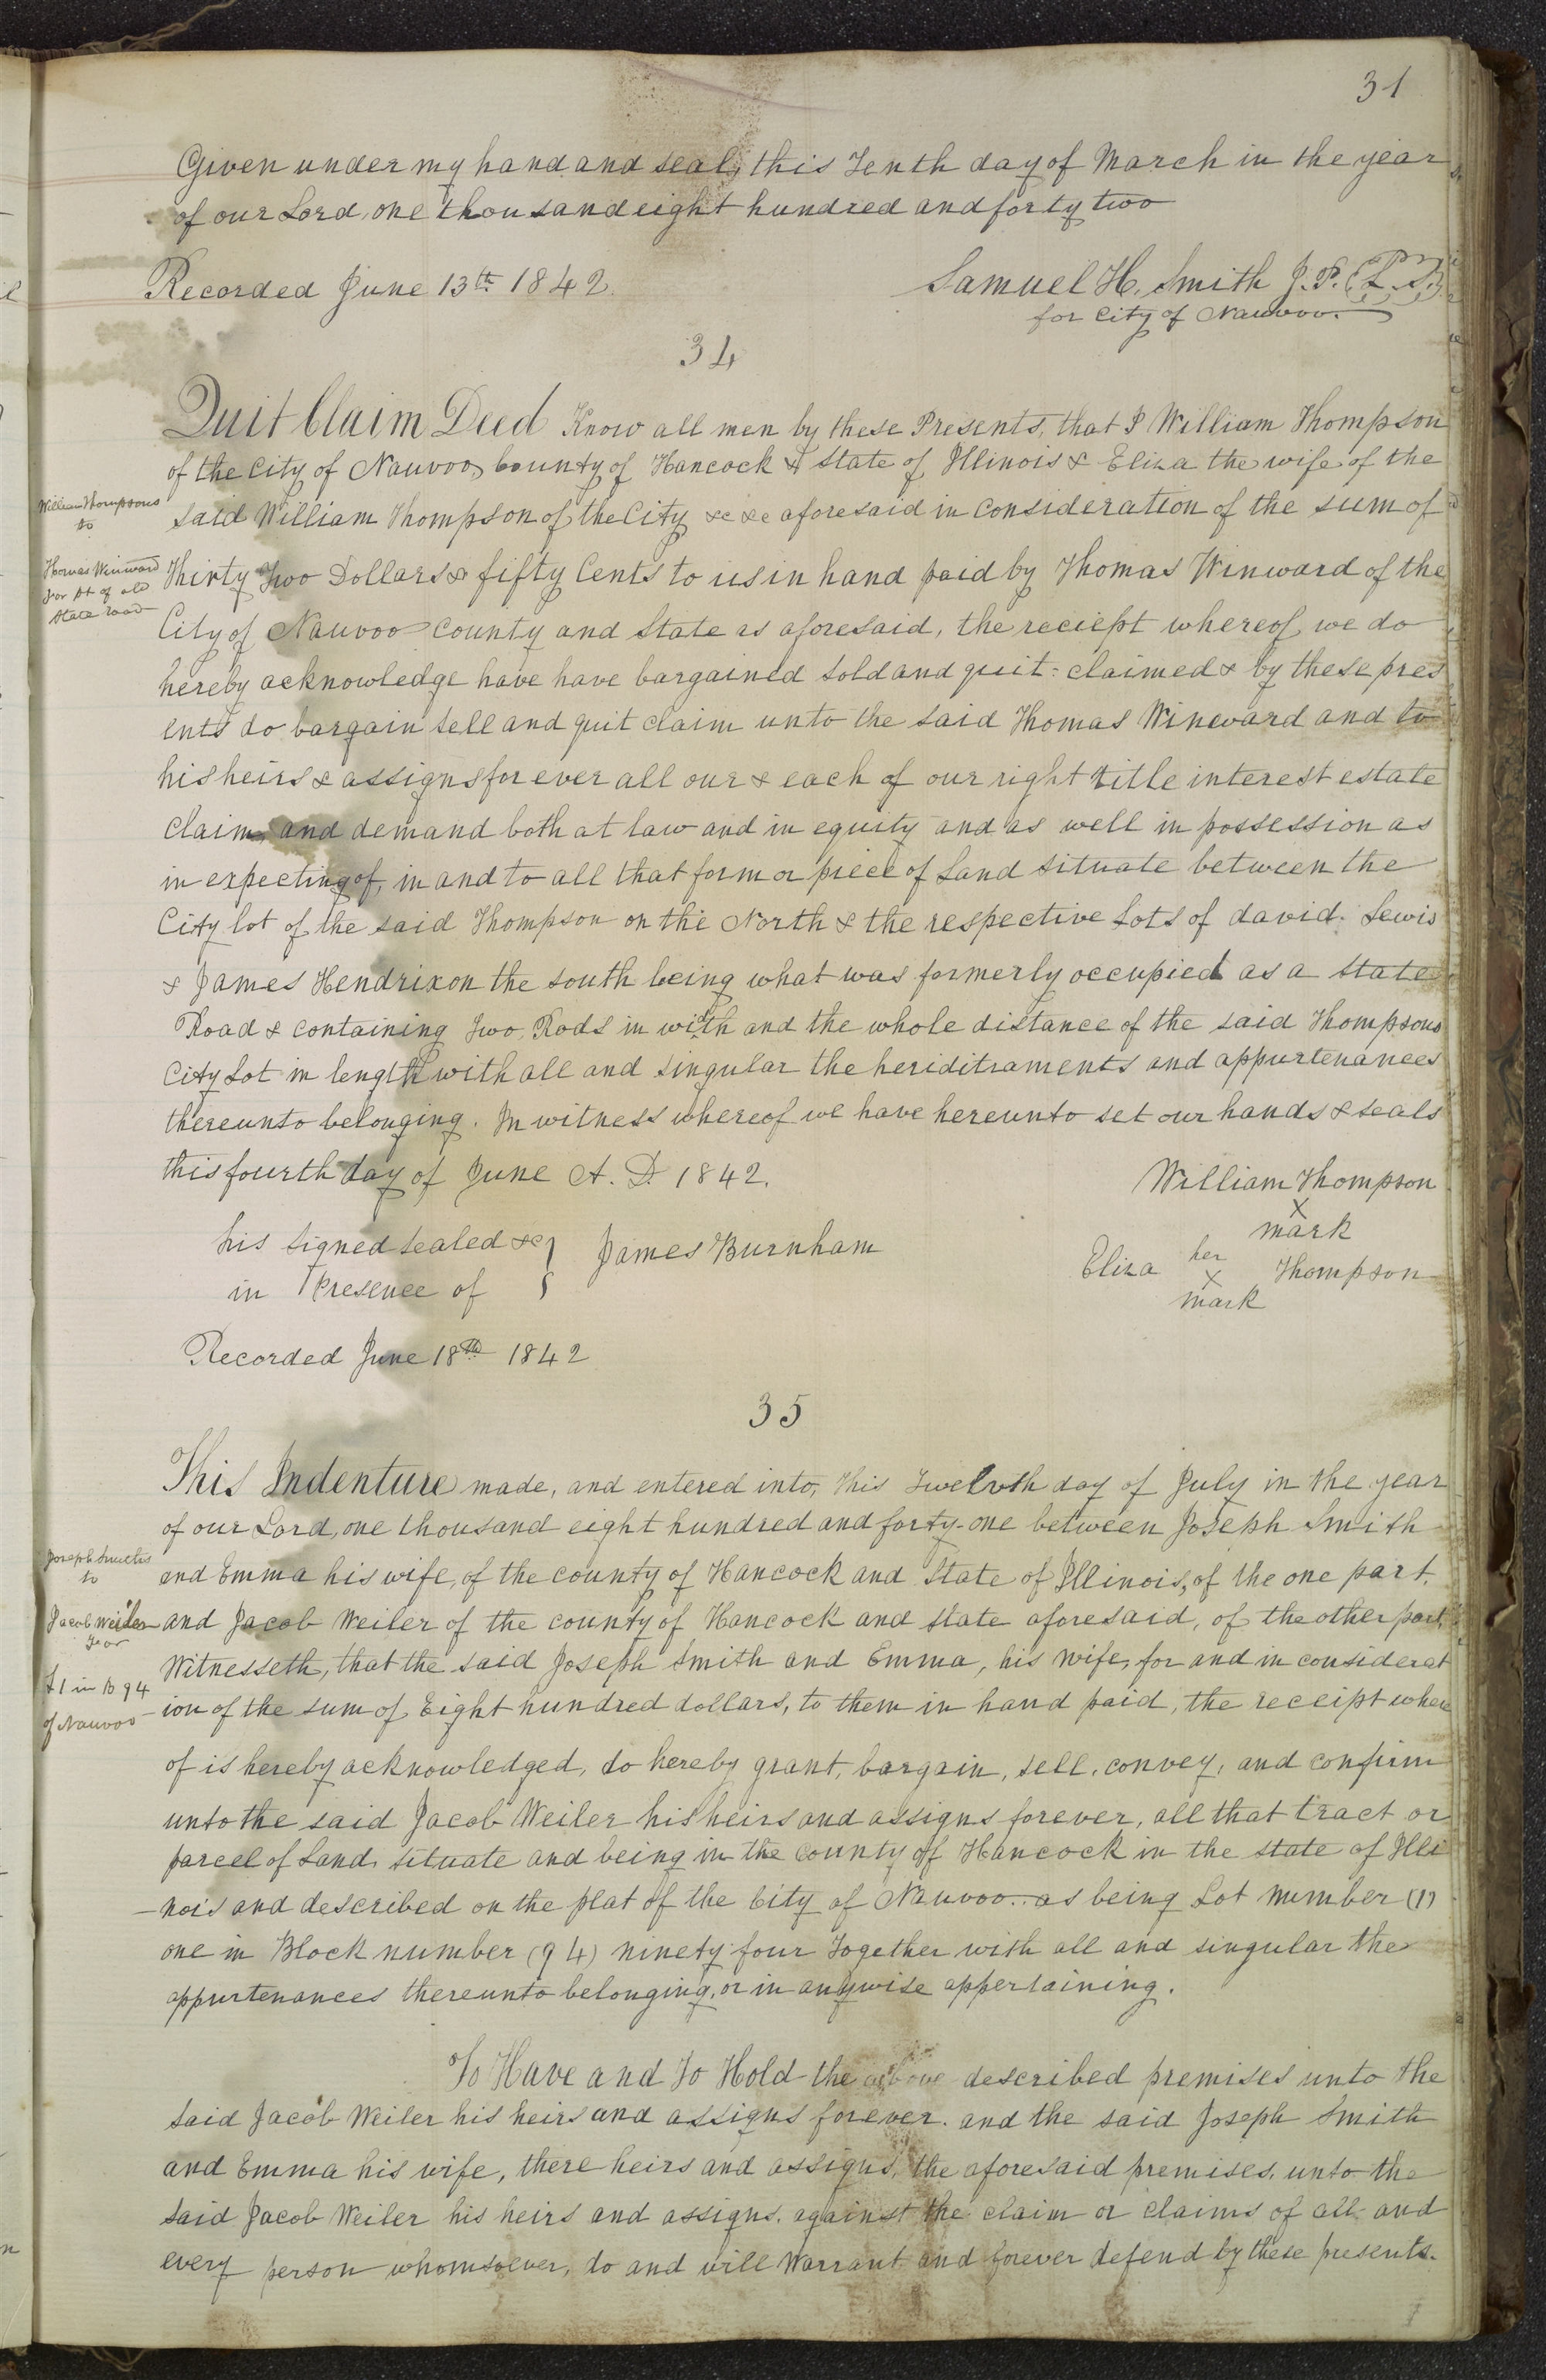 31
Given under my hand and seal, this Tenth day of March in the year
of our Lord, one thousand eight hundred and forty two
Recorded June 13th 1842.
Samuel H. Smith J. P. (L. S.)
for City of Nauvoo.
34
Quit Claim Deed Know all men by these Presents, that I William Thompson
of the City of Nauvoo, County of Hancock & State of Illinois & Eliza the wife of the
said William Thompson of the City &c &c aforesaid in consideration of the sum of
William Thompsons
to
Thomas Winward
for pt of old
State road
Thirty Two Dollars & fifty Cents to us in hand paid by Thomas Winward of the
City of Nauvoo County and State as aforesaid, the reciept whereof we do
hereby acknowledge have have bargained sold and quit-claimed & by these pres
ents do bargain sell and quit claim unto the said Thomas Wineward and to
his heirs & assigns for ever all our & each of our right title interest estate
claim and demand both at law and in equity and as well in possession as
in expecting of, in and to all that form or piece of Land situate between the
City lot of the said Thompson on the North & the respective Lots of david Lewis
& James Hendrix on the south being what was formerly occupied as a State
Road & containing Two Rods in width and the whole distance of the said Thompsons
City Lot in length with all and singular the heriditraments and appurtenances
thereunto belonging. In witness whereof we have hereunto set our hands & seals
this fourth day of June A. D. 1842.
William Thompson
X
mark
his signed sealed &c }
in Presence of }
James Burnham
Eliza her X mark Thompson
Recorded June 18th 1842
35
This Indenture made, and entered into, this Twelvth day of July in the year
of our Lord, one thousand eight hundred and forty-one between Joseph Smith
and Emma his wife, of the county of Hancock and State of Illinois, of the one part,
Joseph Smiths
to
Jacob Weiler
for
L 1 in B 94
of Nauvoo
and Jacob Weiler of the county of Hancock and state aforesaid, of the other part,
Witnesseth, that the said Joseph Smith and Emma, his wife, for and in considerat
-ion of the sum of Eight hundred dollars, to them in hand paid, the receipt where
of is hereby acknowledged, do hereby grant, bargain, sell, convey, and confirm
unto the said Jacob Weiler his heirs and assigns forever, all that tract or
parcel of Land, situate and being in the county of Hancock in the state of Illi
-nois and described on the plat of the City of Nauvoo.. as being Lot number (1)
one in Block number (94) ninety four Together with all and singular the
appurtenances thereunto belonging, or in anywise appertaining.
To Have and To Hold the above described premises unto the
said Jacob Weiler his heirs and assigns forever. and the said Joseph Smith
and Emma his wife, there heirs and assigns, the aforesaid premises, unto the
said Jacob Weiler his heirs and assigns, against the claim or claims of all and
every person whomsoever, do and will Warrant and forever defend by these presents.